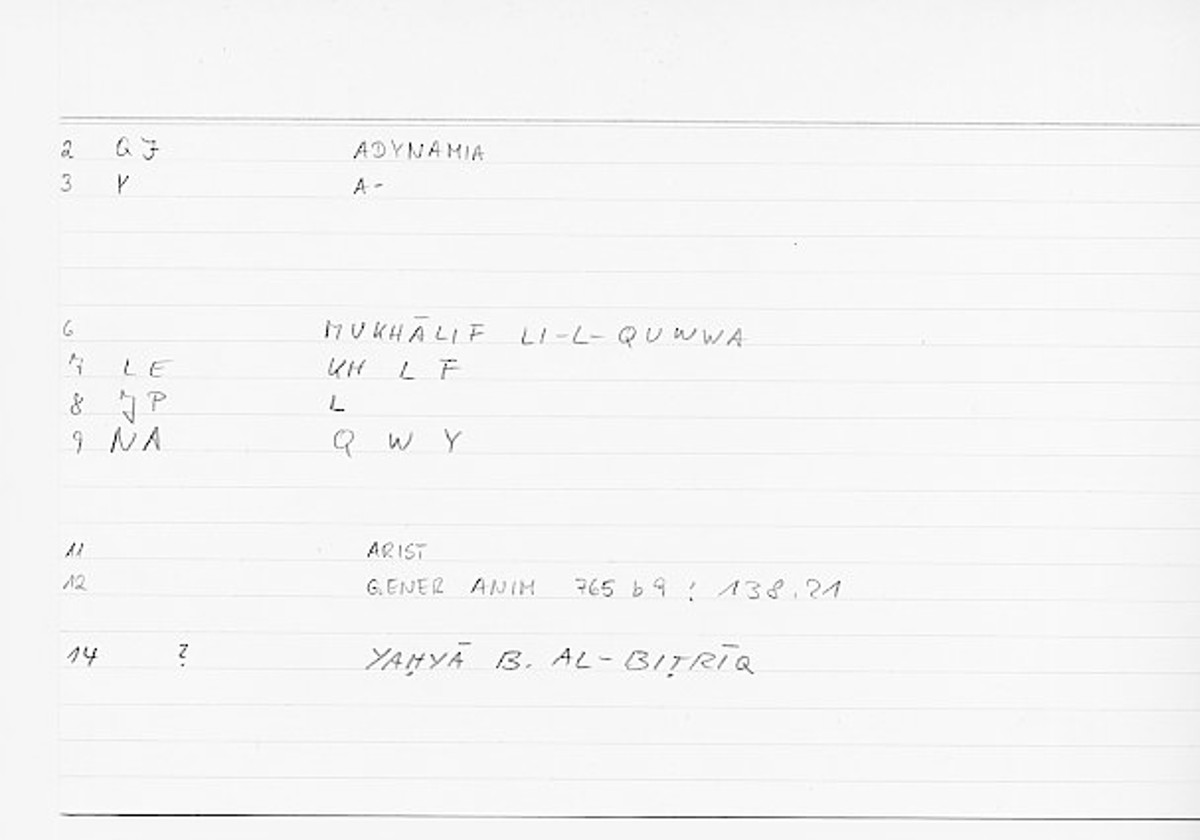 2 QJ ADYNAMIA
3 Y A-
6 MUKHĀLIF LI-L-QUWWA
7 LE KH L F
8 JP L
9 NA Q W Y
11 ARIST
12 GENER ANIM 765 b 9 : 138.21
14 ? YAḤYĀ B. AL-BIṬRĪQ